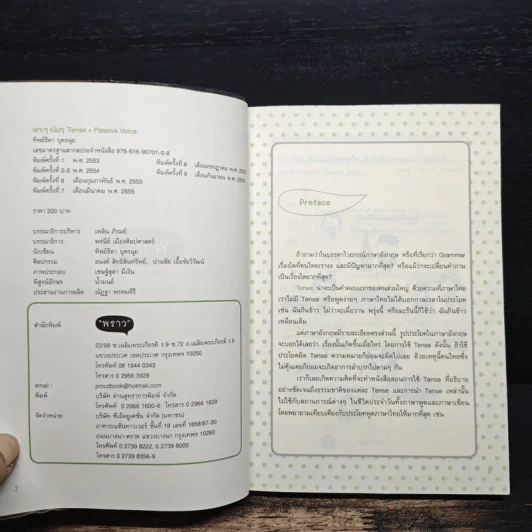 เจาะๆ เน้นๆ Tense + Passive Voice
ทิพย์ธิดา บุตรฉุย
เลขมาตรฐานสากลประจำหนังสือ 978-616-90701-0-9
พิมพ์ครั้งที่ 1 พ.ศ. 2553
พิมพ์ครั้งที่ 2-5 พ.ศ. 2554
พิมพ์ครั้งที่ 6 เดือนกุมภาพันธ์ พ.ศ. 2555
พิมพ์ครั้งที่ 7 เดือนมีนาคม พ.ศ. 2555
พิมพ์ครั้งที่ 8 เดือนกรกฎาคม พ.ศ.
พิมพ์ครั้งที่ 9 เดือนกันยายน พ.ศ.
ราคา 200 บาท
บรรณาธิการบริหาร เพลิน ภิรมย์
บรรณาธิการ พจนีย์ เมืองศิลปศาสตร์
นักเขียน ทิพย์ธิดา บุตรฉุย
ศิลปกรรม อนงค์ สิทธิสินทรัพย์,
ภาพประกอบ เชษฐ์สุดา มีเงิน
พิสูจน์อักษร น้ำมนต์
ประสานงานการผลิต ณัฏฐา พรหมศิริ
สำนักพิมพ์ "พราว"
22/99 ซ.เฉลิมพระเกียรติ ร.9 ซ.72 ถ.เฉลิมพระเกียรติ ร.9
แขวงประเวศ เขตประเวศ กรุงเทพฯ 10250
โทรศัพท์ 08 1944 0343
โทรสาร 0 2956 3929
email : proudbook@hotmail.com
พิมพ์ บริษัท ด่านสุทธาการพิมพ์ จำกัด
โทรศัพท์ 0 2966 1600-6 โทรสาร 0 2966 1609
จัดจำหน่าย บริษัท ซีเอ็ดยูเคชั่น จำกัด (มหาชน)
อาคารเนชั่นทาวเวอร์ ชั้นที่ 19 เลขที่ 1858/87-90
ถนนบางนา-ตราด แขวงบางนา กรุงเทพฯ 10260
โทรศัพท์ 0 2739 8222, 0 2739 8000
โทรสาร 0 2739 8356-9
2
Preface
ถ้าถามว่าในบรรดาไวยกรณ์ภาษาอังกฤษ หรือที่เรียกว่า Grammar
เรื่องใดที่คนไทยเรางง และมีปัญหามากที่สุด? หรือแม้ว่าจะเปลี่ยนคำถาม
เป็นเรื่องใดยากที่สุด?
Tense น่าจะเป็นคำตอบแรกของคนส่วนใหญ่ ด้วยความที่ภาษาไทย
เราไม่มี Tense หรือพูดง่ายๆ ภาษาไทยไม่ได้บอกกาลเวลาในประโยค
เช่น ฉันกินข้าว ไม่ว่าจะเมื่อวาน พรุ่งนี้ หรือมะรืนนี้ก็ใช้ว่า ฉันกินข้าว
เหมือนเดิม
แต่ภาษาอังกฤษมีรายละเอียดตรงส่วนนี้ รูปประโยคในภาษาอังกฤษ
จะบอกได้เลยว่า เรื่องนั้นเกิดขึ้นเมื่อไหร่ โดยการใช้ Tense ดังนั้น ถ้าใช้
ประโยคผิด Tense ความหมายก็ย่อมจะผิดไปเลย ด้วยเหตุนี้คนไทยซึ่ง
ไม่คุ้นเคยก็ย่อมจะเกิดอาการลำบากไปตามๆ กัน
เราก็เลยเกิดความคิดที่จะทำหนังสือสอนการใช้ Tense ที่อธิบาย
อย่างชัดเจนถึงธรรมชาติของแต่ละ Tense และการนำ Tense เหล่านั้น
ไปใช้กับสถานการณ์ต่างๆ ในชีวิตประจำวันทั้งภาษาพูดและภาษาเขียน
โดยพยายามเทียบเคียงกับประโยคพูดภาษาไทยให้มากที่สุด เช่น